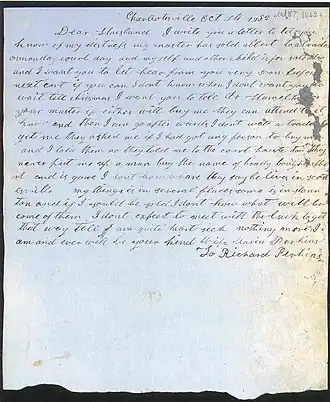 Charlottesville Oct 8th 1852
Dear Husband I write you a letter to let you
know of my distress my master has sold albert to a trader
on monday court day and myself and other child is for sale also
and I want you to let hear from you very soon before
next cort if you can I dont know when I dont want you to
wait till chrismas I want you to tell dr Hamelton
your master if either will buy me they can attend to it
know and then I can go afterwards I dont want a trader to
get me they asked me if I had got any person to buy me
and I told them no they told me to the court houste too they
never put me up a man buy the name of brady bought albert
and is gone I dont know whare they say he lives in scott
esville my things is in several places some is in staun
ton and if I would be sold I dont know what will be
come of them I dont expect to meet with the luck to get
that way till I am quite heart sick nothing more I
am and ever will be your kind Wife Maria Perkins
To Richard Perkins